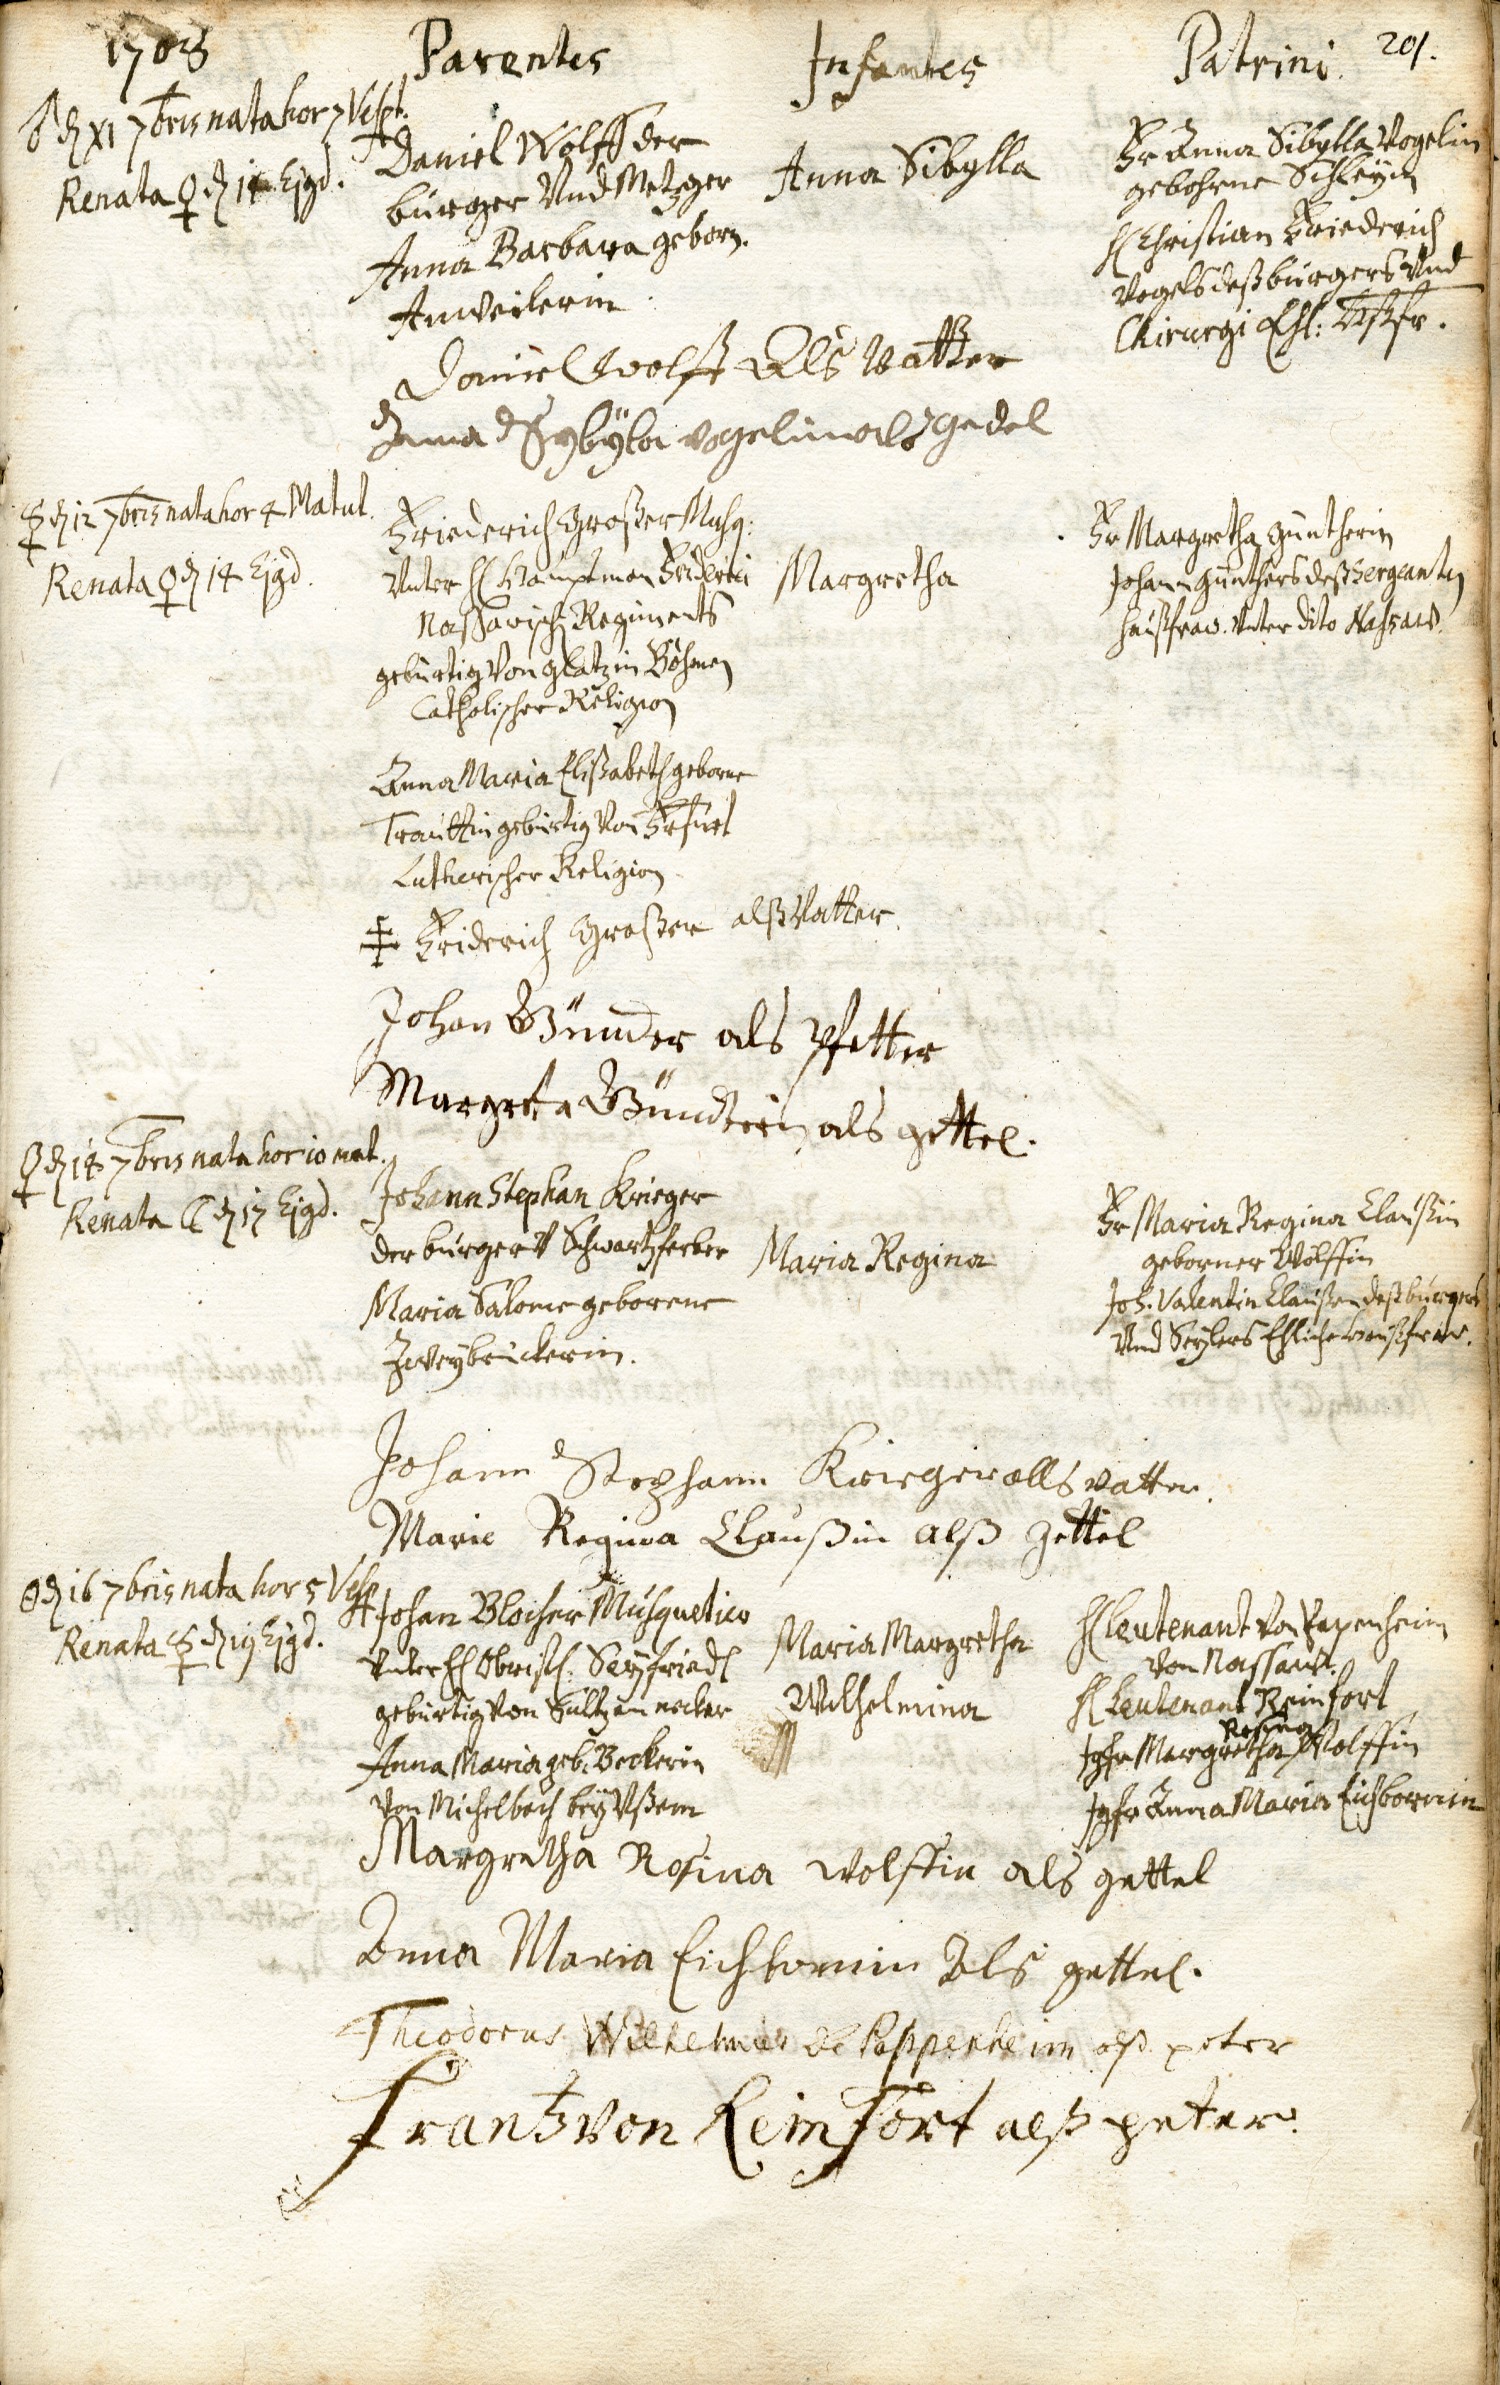 1703 Parentes Infantes Patrini. 201.
♂ d XI 7bris nata hor 7 Vesp:
Renata ♀ d 14 Ejgd.
Daniel Wolff der
burger Vnd Metzger
Anna Barbara geborn.
Anweilerin
Anna Sibylla
Fr Anna Sibylla Vogelin
gebohrne Schleyin
H Christian Friederich
Vogels deß burgers Vnd
Chirurgi Ehl: Haßfr.
Daniel Wolff Als Vatter
Anna Sybÿla vogelin als gedel
☿ d 12 7bris nata hor 4 Matut.
Renata ♀ d 14 Ejgd.
Friederich Großer Musq:
Vnter H Hauptman Friderici
Nassawisch Regiments
gebürtig Von Glatz in Böhmen
Catholischer Religion
Anna Maria Elißabeth geborne
Trauttin gebürtig Von Erfurt
Lutherischer Religion
Margretha
Fr Margretha Güntherin
Johann Günthers deß Sergeanten
haußfraw. Vnter dito Nassaw.
‡ Friderich Großer alß Vatter.
Johan Günder als Pfetter
Margreta Gündrin als gettel.
♀ d 14 7bris nata hor 10 mat.
Renata ☾ d 17 Ejgd.
Johann Stephan Krieger
der burger V Schwartzferber
Maria Salome geborene
Zweybrückerin.
Maria Regina
Fr Maria Regina Claußin
geborner Wölffin
Joh. Valentin Claußen deß burgers
Vnd Seylers Ehliche haußfraw.
Johann Stephann Krieger alls vatter.
Marie Regina Claußin alß gettel
☉ d 16 7bris nata hor 5 Vesp
Renata ☿ d 19 Ejgd.
Johan Blocher Musquetier
Vnter H Obristl. Seyfried
gebürtig Von Sultz am necker
Anna Maria geb. Beckerin
Von Michelbach bey Vßem
Maria Margretha
Wilhelmina
H Leutenant Von Papenheim
Von Nassaw.
H Leutenant Reinfort
Rosina
Jgfr Margretha Wolffin
Jgfr Anna Maria Eichbornin
Margretha Rosina Wolffin als gettel
Anna Maria Eichbornin Als gettel.
Theodorus Wilhelmus de Pappenheim alß peter
Frantz von Reinfort alß peter.